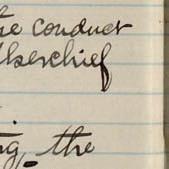 the conduct
kerchief
ing, the